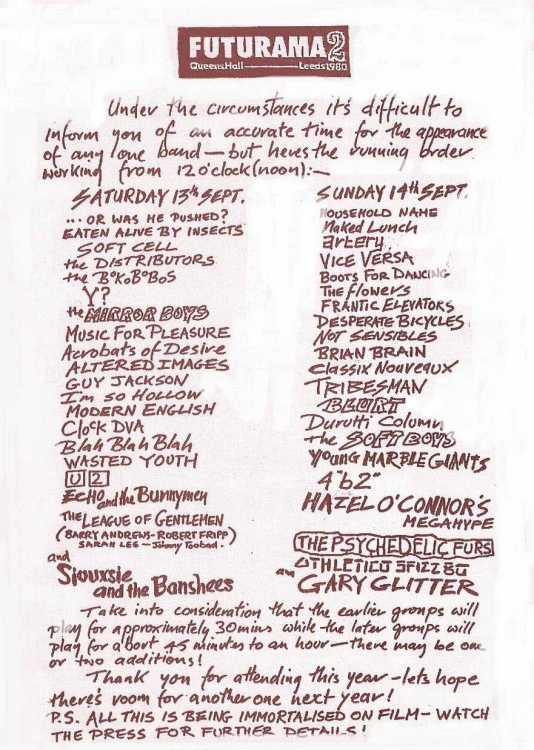 FUTURAMA 2
Queens Hall — Leeds 1980
Under the circumstances its difficult to
inform you of an accurate time for the appearance
of any one band – but heres the running order
working from 12 o'clock (noon):–
SATURDAY 13th SEPT.
... OR WAS HE PUSHED?
EATEN ALIVE BY INSECTS
SOFT CELL
the DISTRIBUTORS
the B°K°B°B°S
Y?
the MIRROR BOYS
MUSIC FOR PLEASURE
Acrobats of Desire
ALTERED IMAGES
GUY JACKSON
I'm so HOLLOW
MODERN ENGLISH
Clock DVA
Blah Blah Blah
WASTED YOUTH
U2
ECHO and the Bunnymen
THE LEAGUE OF GENTLEMEN
(BARRY ANDREWS – ROBERT FRIPP)
SARAH LEE – Johnny Toobad.
and
Siouxsie
and the Banshees
SUNDAY 14th SEPT.
HOUSEHOLD NAME
Naked Lunch
artery
VICE VERSA
BOOTS FOR DANCING
THE flowers
FRANTIC ELEVATORS
DESPERATE BICYCLES
NOT SENSIBLES
BRIAN BRAIN
Classix Nouveaux
TRIBESMAN
BLURT
Durutti Column
the SOFT BOYS
YOUNG MARBLE GIANTS
4"b2"
HAZEL O'CONNOR'S
MEGAHYPE
THE PSYCHEDELIC FURS
ATHLETICO SPIZZ 80
GARY GLITTER
Take into consideration that the earlier groups will
play for approximately 30mins while the later groups will
play for about 45 minutes to an hour – there may be one
or two additions!
Thank you for attending this year – lets hope
there's room for another one next year!
P.S. ALL THIS IS BEING IMMORTALISED ON FILM – WATCH
THE PRESS FOR FURTHER DETAILS!